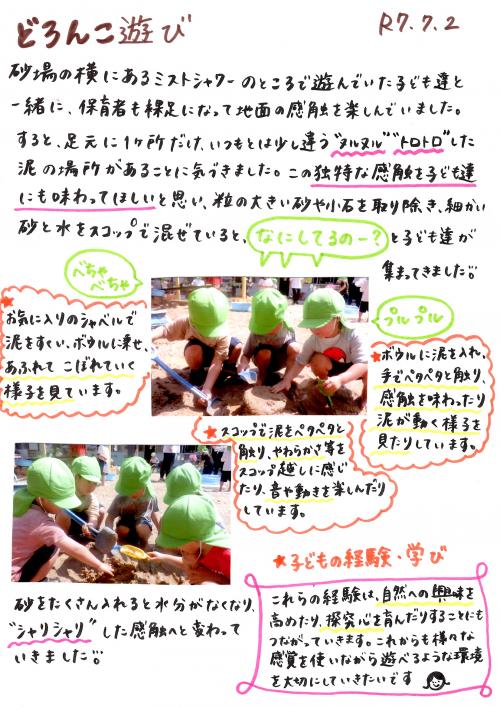 どろんこ遊び
R7.7.2
砂場の横にあるミストシャワーのところで遊んでいた子ども達と
一緒に、保育者も裸足になって地面の感触を楽しんでいました。
すると、足元に1ヶ所だけ、いつもとは少し違う"ヌルヌル""トロトロ"した
泥の場所があることに気づきました。この独特な感触を子ども達
にも味わってほしいと思い、粒の大きい砂や小石を取り除き、細かい
砂と水をスコップで混ぜていると、なにしてるのー?と子ども達が
集まってきました
べちゃ
べちゃ
お気に入りのシャベルで
泥をすくい、ボウルに乗せ、
あふれて こぼれていく
様子を見ています。
プルプル
ボウルに泥を入れ、
手でペタペタと触り、
感触を味わったり
泥が動く様子を
見たりしています。
スコップで泥をペタペタと
触り、やわらかさ等を
スコップ越しに感じ
たり、音や動きを楽しんだり
しています。
砂をたくさん入れると水分がなくなり、
"シャリシャリ"した感触へと変わって
いきました
子どもの経験・学び
これらの経験は、自然への興味を
高めたり、探究心を育んだりすることにも
つながっていきます。これからも様々な
感覚を使いながら遊べるような環境
を大切にしていきたいです